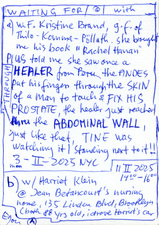 WAITING FOR with
a) W.F. Kristine Brand, g.f. of
Thilo-Kennut-Folkath she brought
me his book "Rachel Hanan"
Plus told me she saw once a
HEALER from Peru, the ANDES
put his finger through the SKIN
of a man to touch & FIX HIS
PROSTATE the healer just reached
thru the ABDOMINAL WALL,
just like that, TINE was
watching it! standing next to it!!
3-II-2025 NYC
THROUGH
11 II 2025
14:00–16:00
b) w/ Harriet Klein
@ Jean Betancourt's nursing
home, 135 Linden Blvd., Brooklyn
88 yrs old, drove Harriet's car